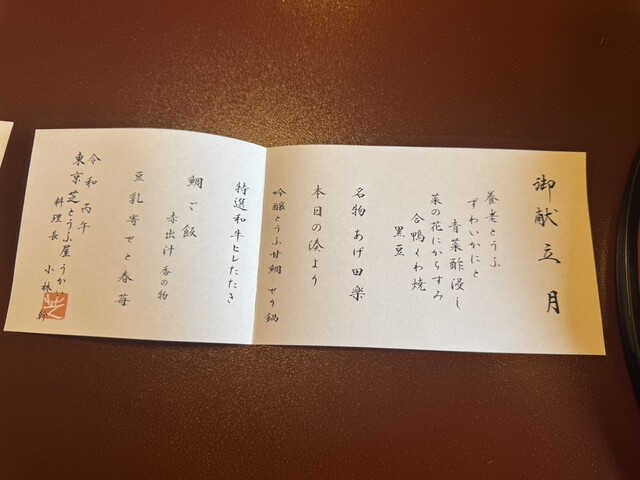 御献立 月
養老とうふ
ずわいかにと
青菜酢浸し
菜の花にからすみ
合鴨くわ焼
黒豆
名物 あげ田楽
本日の湊より
吟醸とうふ 甘鯛 せり鍋
特選和牛ヒレたたき
鯛ご飯
赤出汁 香の物
豆乳寄せと春苺
令和 丙午
東京 芝 とうふ屋うかい
料理長 小林